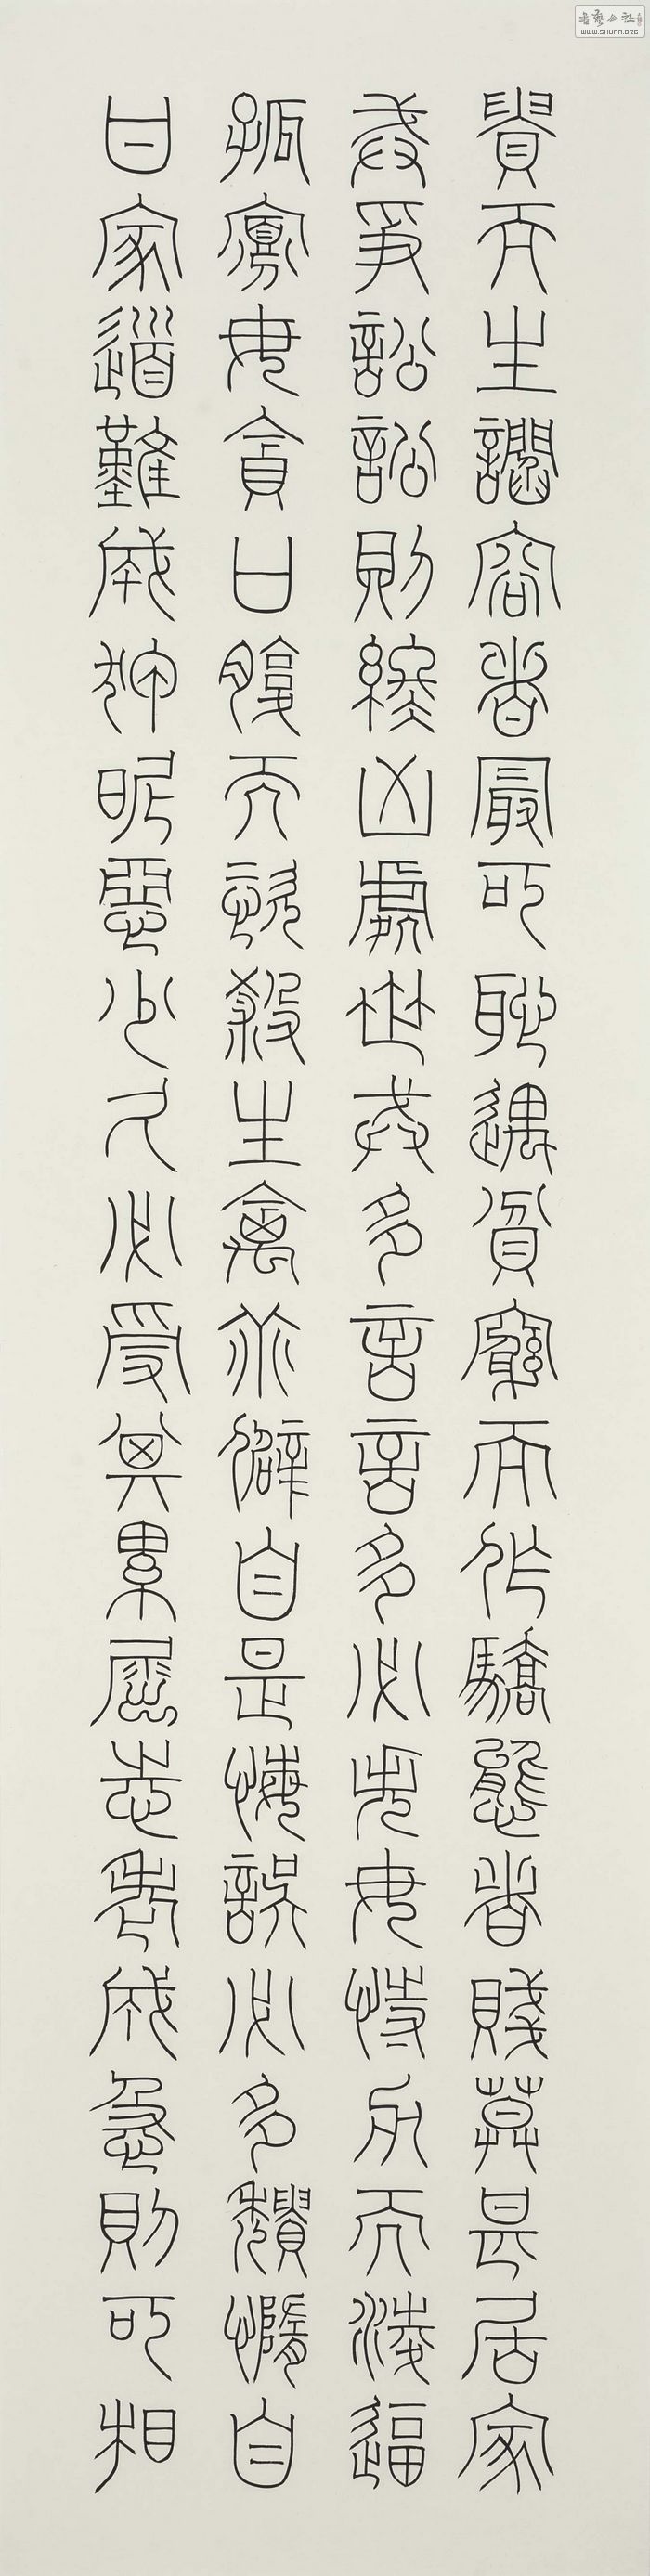 貴而生讇容者最可恥遇貧窮而作驕態者賤莫甚居家
戒爭訟訟則終凶處世戒多言言多必失毋恃勢力而淩逼
孤寡毋貪口腹而恣殺生禽乖僻自是悔誤必多穨惰自
甘家道難成狎昵惡少久必受其累屈志老成急則可相
WWW.SHUFA.ORG